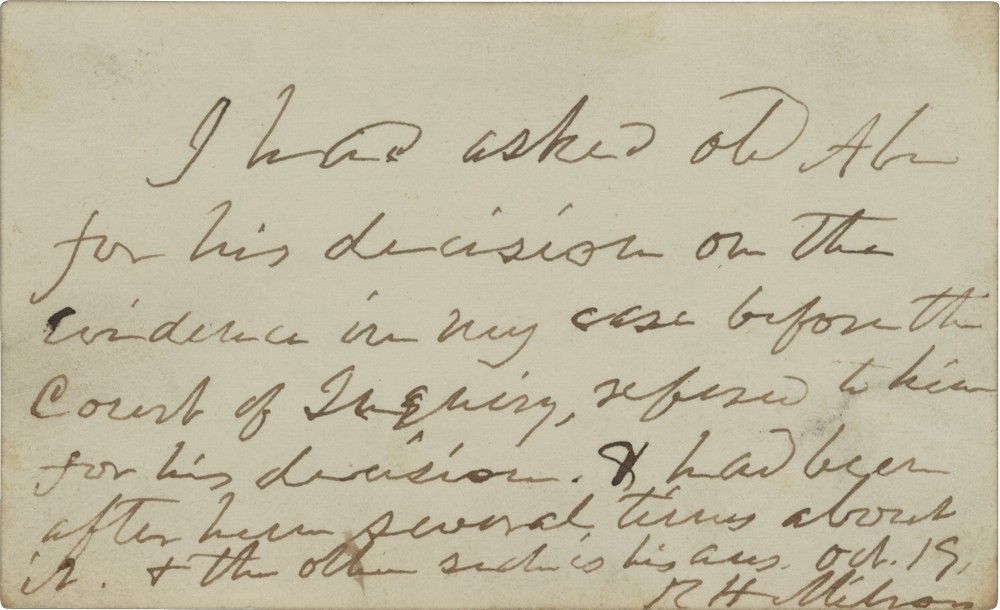 I had asked old Abe
for his decision on the
evidence in my case before the
Court of Inquiry, refered to him
for his decision. & had been
after him several times about
it. & the other side is his ans. Oct. 19,
R H Milroy